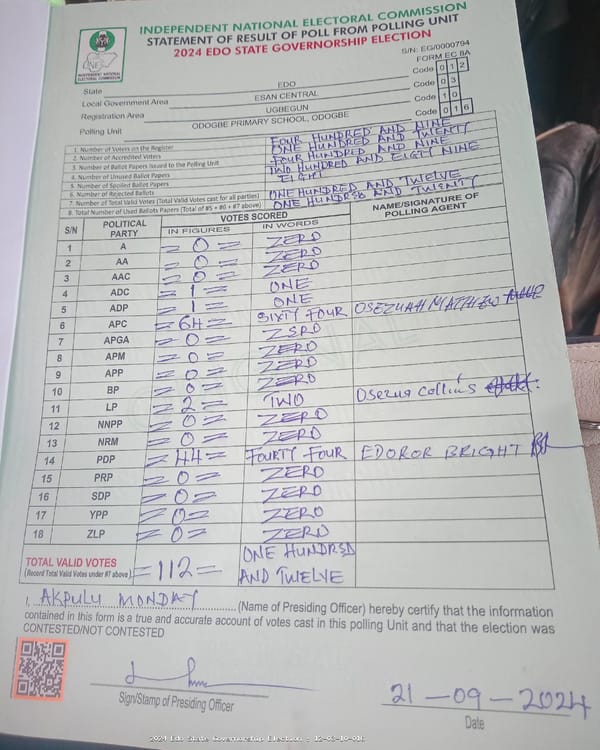 INDEPENDENT NATIONAL ELECTORAL COMMISSION
STATEMENT OF RESULT OF POLL FROM POLLING UNIT
2024 EDO STATE GOVERNORSHIP ELECTION
S/N: EG/0000794
FORM EC 8A
INDEPENDENT NATIONAL ELECTORAL COMMISSION
State EDO Code 0 1 2
Local Government Area ESAN CENTRAL Code 0 3
Registration Area UGBEGUN Code 1 0
Polling Unit ODOGBE PRIMARY SCHOOL, ODOGBE Code 0 1 6
1. Number of Voters on the Register FOUR HUNDRED AND NINE
2. Number of Accredited Voters ONE HUNDRED AND TWENTY
3. Number of Ballot Papers Issued to the Polling Unit FOUR HUNDRED AND NINE
4. Number of Unused Ballot Papers TWO HUNDRED AND EIGTY NINE
5. Number of Spoiled Ballot Papers
6. Number of Rejected Ballots
7. Number of Total Valid Votes (Total Valid Votes cast for all parties) ONE HUNDRED AND TWELVE
8. Total Number of Used Ballots Papers (Total of #5 + #6 + #7 above) ONE HUNDRED AND TWENTY
S/N POLITICAL PARTY VOTES SCORED NAME/SIGNATURE OF POLLING AGENT
IN FIGURES IN WORDS
1 A =0= ZERO
2 AA =0= ZERO
3 AAC =0= ZERO
4 ADC =1= ONE
5 ADP =1= ONE
6 APC =64= SIXTY FOUR OSEZUAH MATHEW
7 APGA =0= ZERO
8 APM =0= ZERO
9 APP =0= ZERO
10 BP =0= ZERO
11 LP =2= TWO Osezua Collins
12 NNPP =0= ZERO
13 NRM =0= ZERO
14 PDP =44= FOURTY FOUR EDOROR BRIGHT
15 PRP =0= ZERO
16 SDP =0= ZERO
17 YPP =0= ZERO
18 ZLP =0= ZERO
TOTAL VALID VOTES =112= ONE HUNDRED
(Record Total Valid Votes under #7 above) AND TWELVE
I, AKPULU MONDAY (Name of Presiding Officer) hereby certify that the information
contained in this form is a true and accurate account of votes cast in this polling Unit and that the election was
CONTESTED/NOT CONTESTED
Sign/Stamp of Presiding Officer
21-09-2024
Date
2024 Edo State Governorship Election - 12-03-10-016